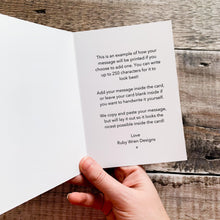 This is an example of how your
message will be printed if you
choose to add one. You can write
up to 250 characters for it to
look best!
Add your message inside the card,
or leave your card blank inside if
you want to handwrite it yourself.
We copy and paste your message,
but will lay it out so it looks the
nicest possible inside the card!
Love
Ruby Wren Designs